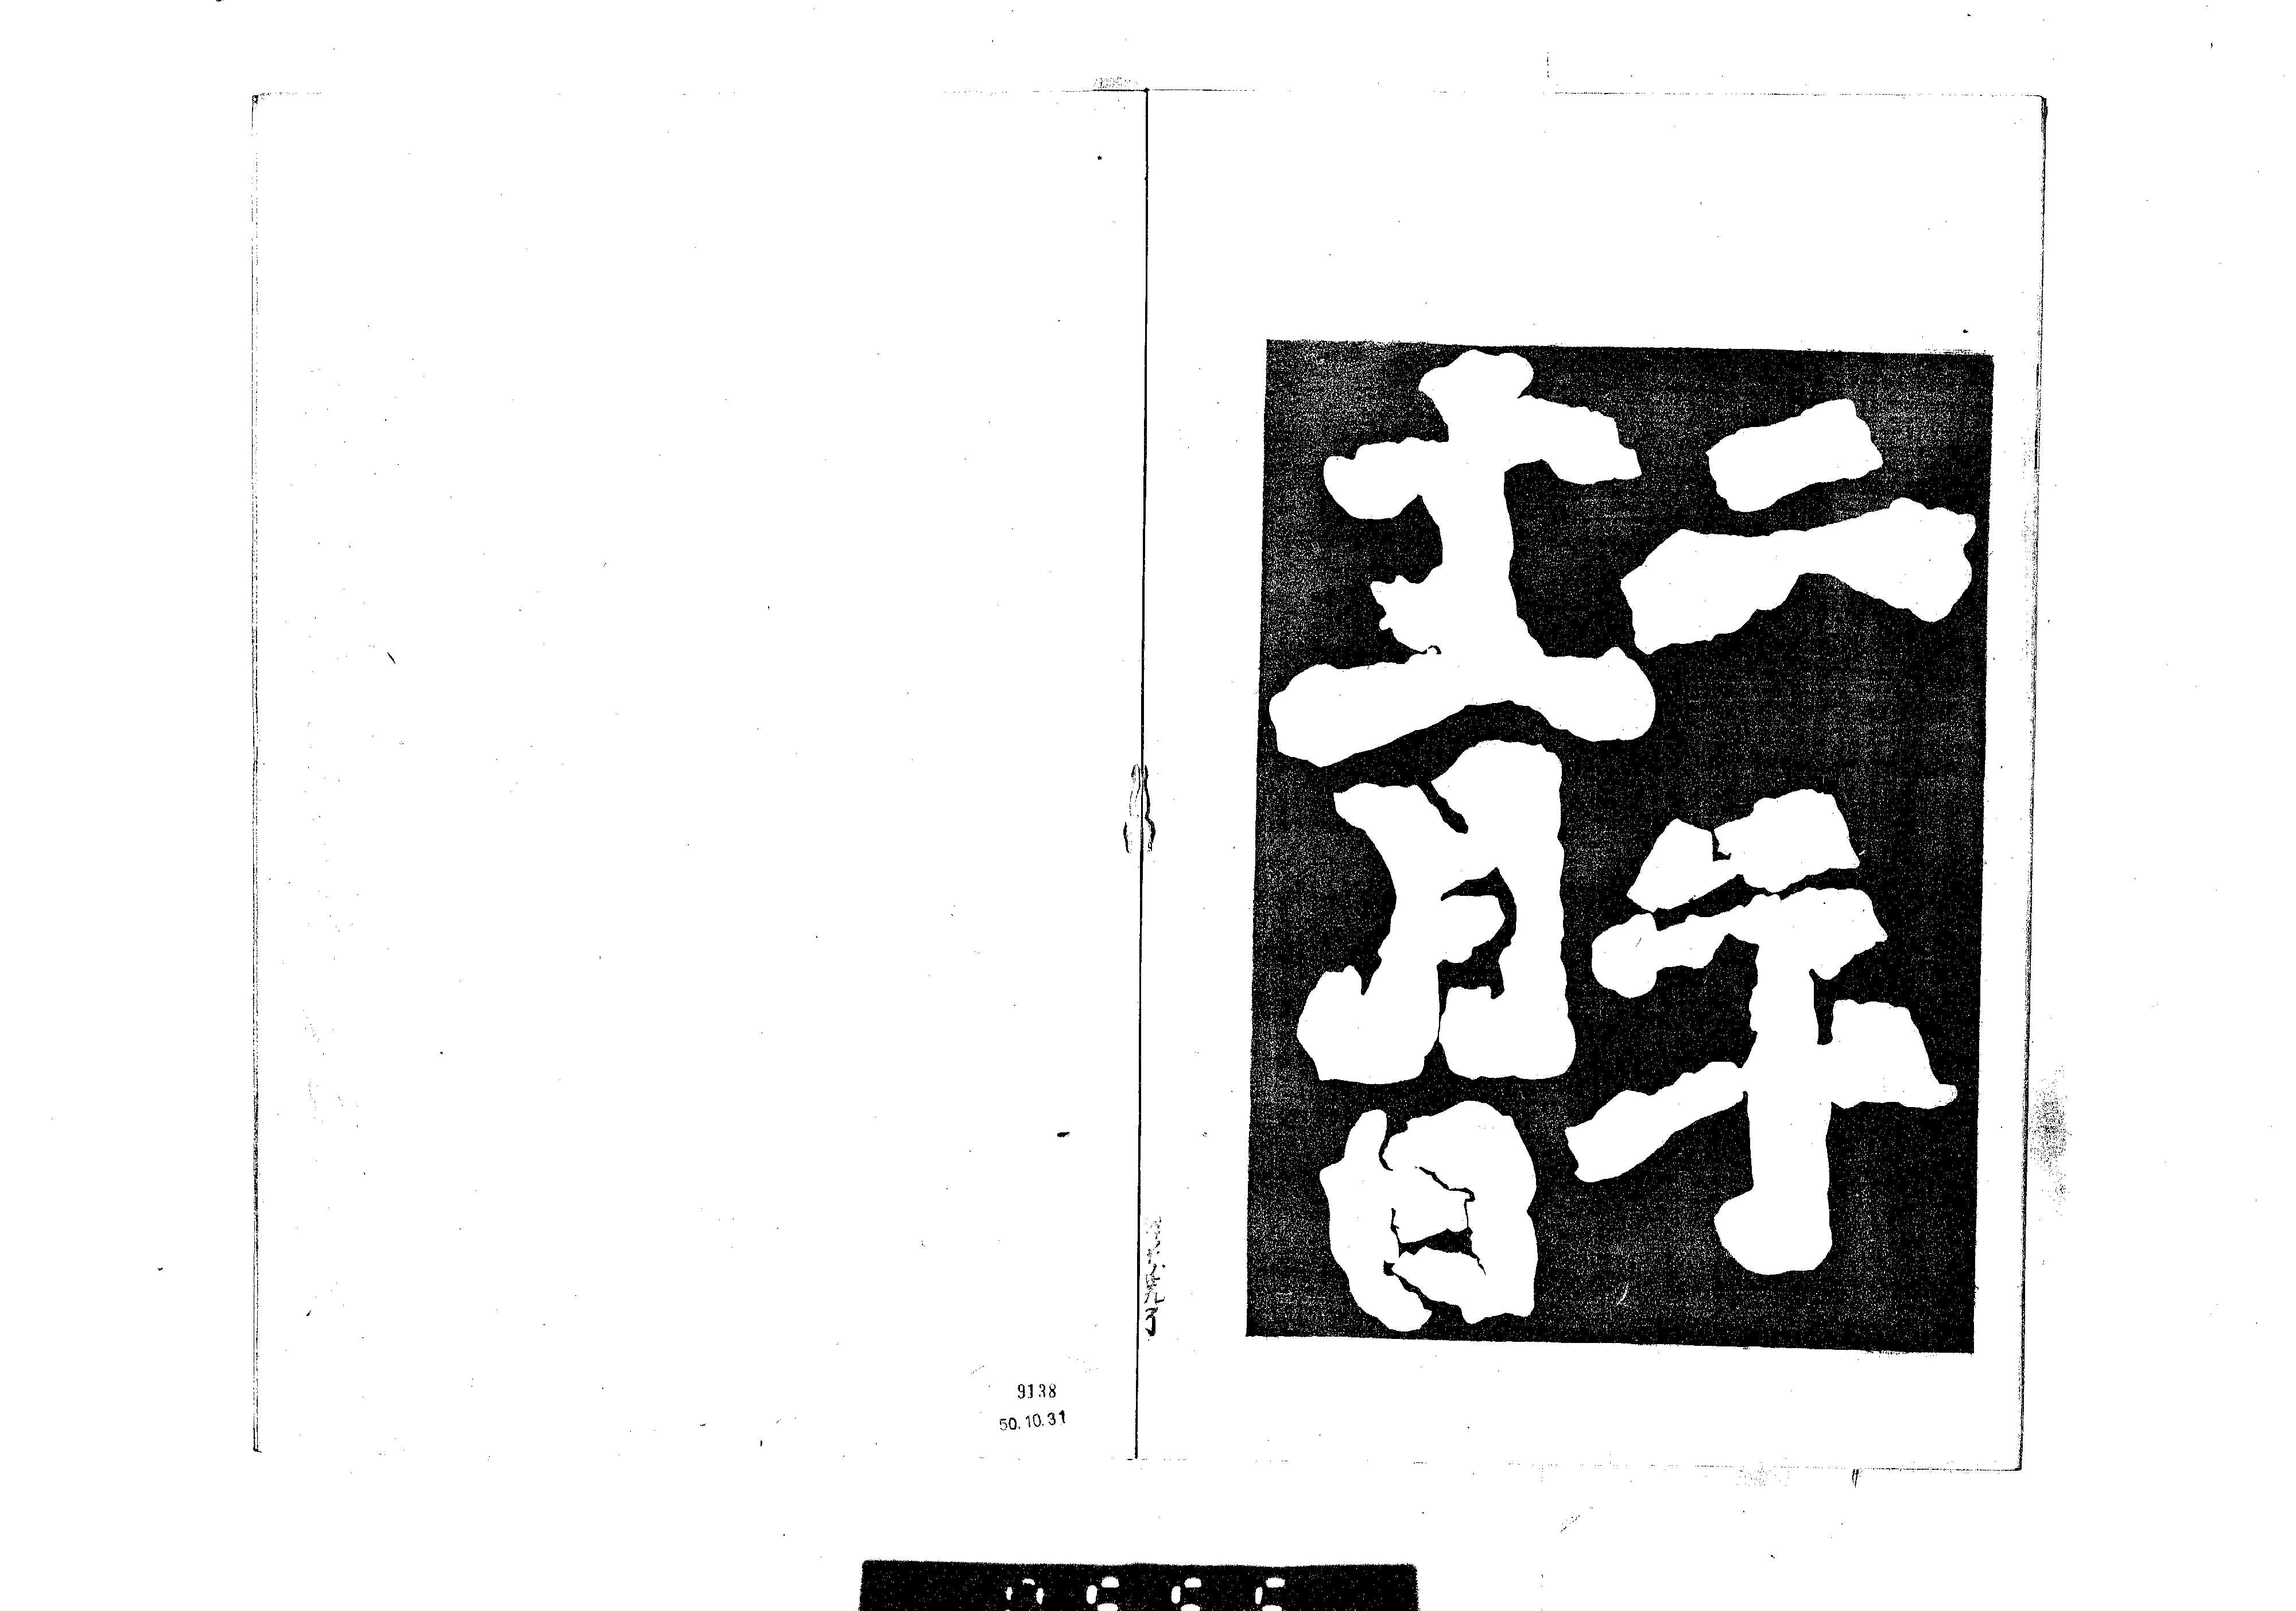 二年
十二月日
9138
50.10.31